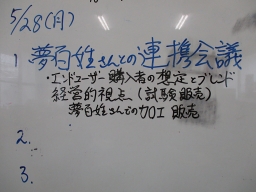 5/28(月)
1 夢百姓さんとの連携会議
・エンドユーザー購入者の想定とブレンド
経営的視点(試験販売)
夢百姓さんでの加工 販売
2.
3.